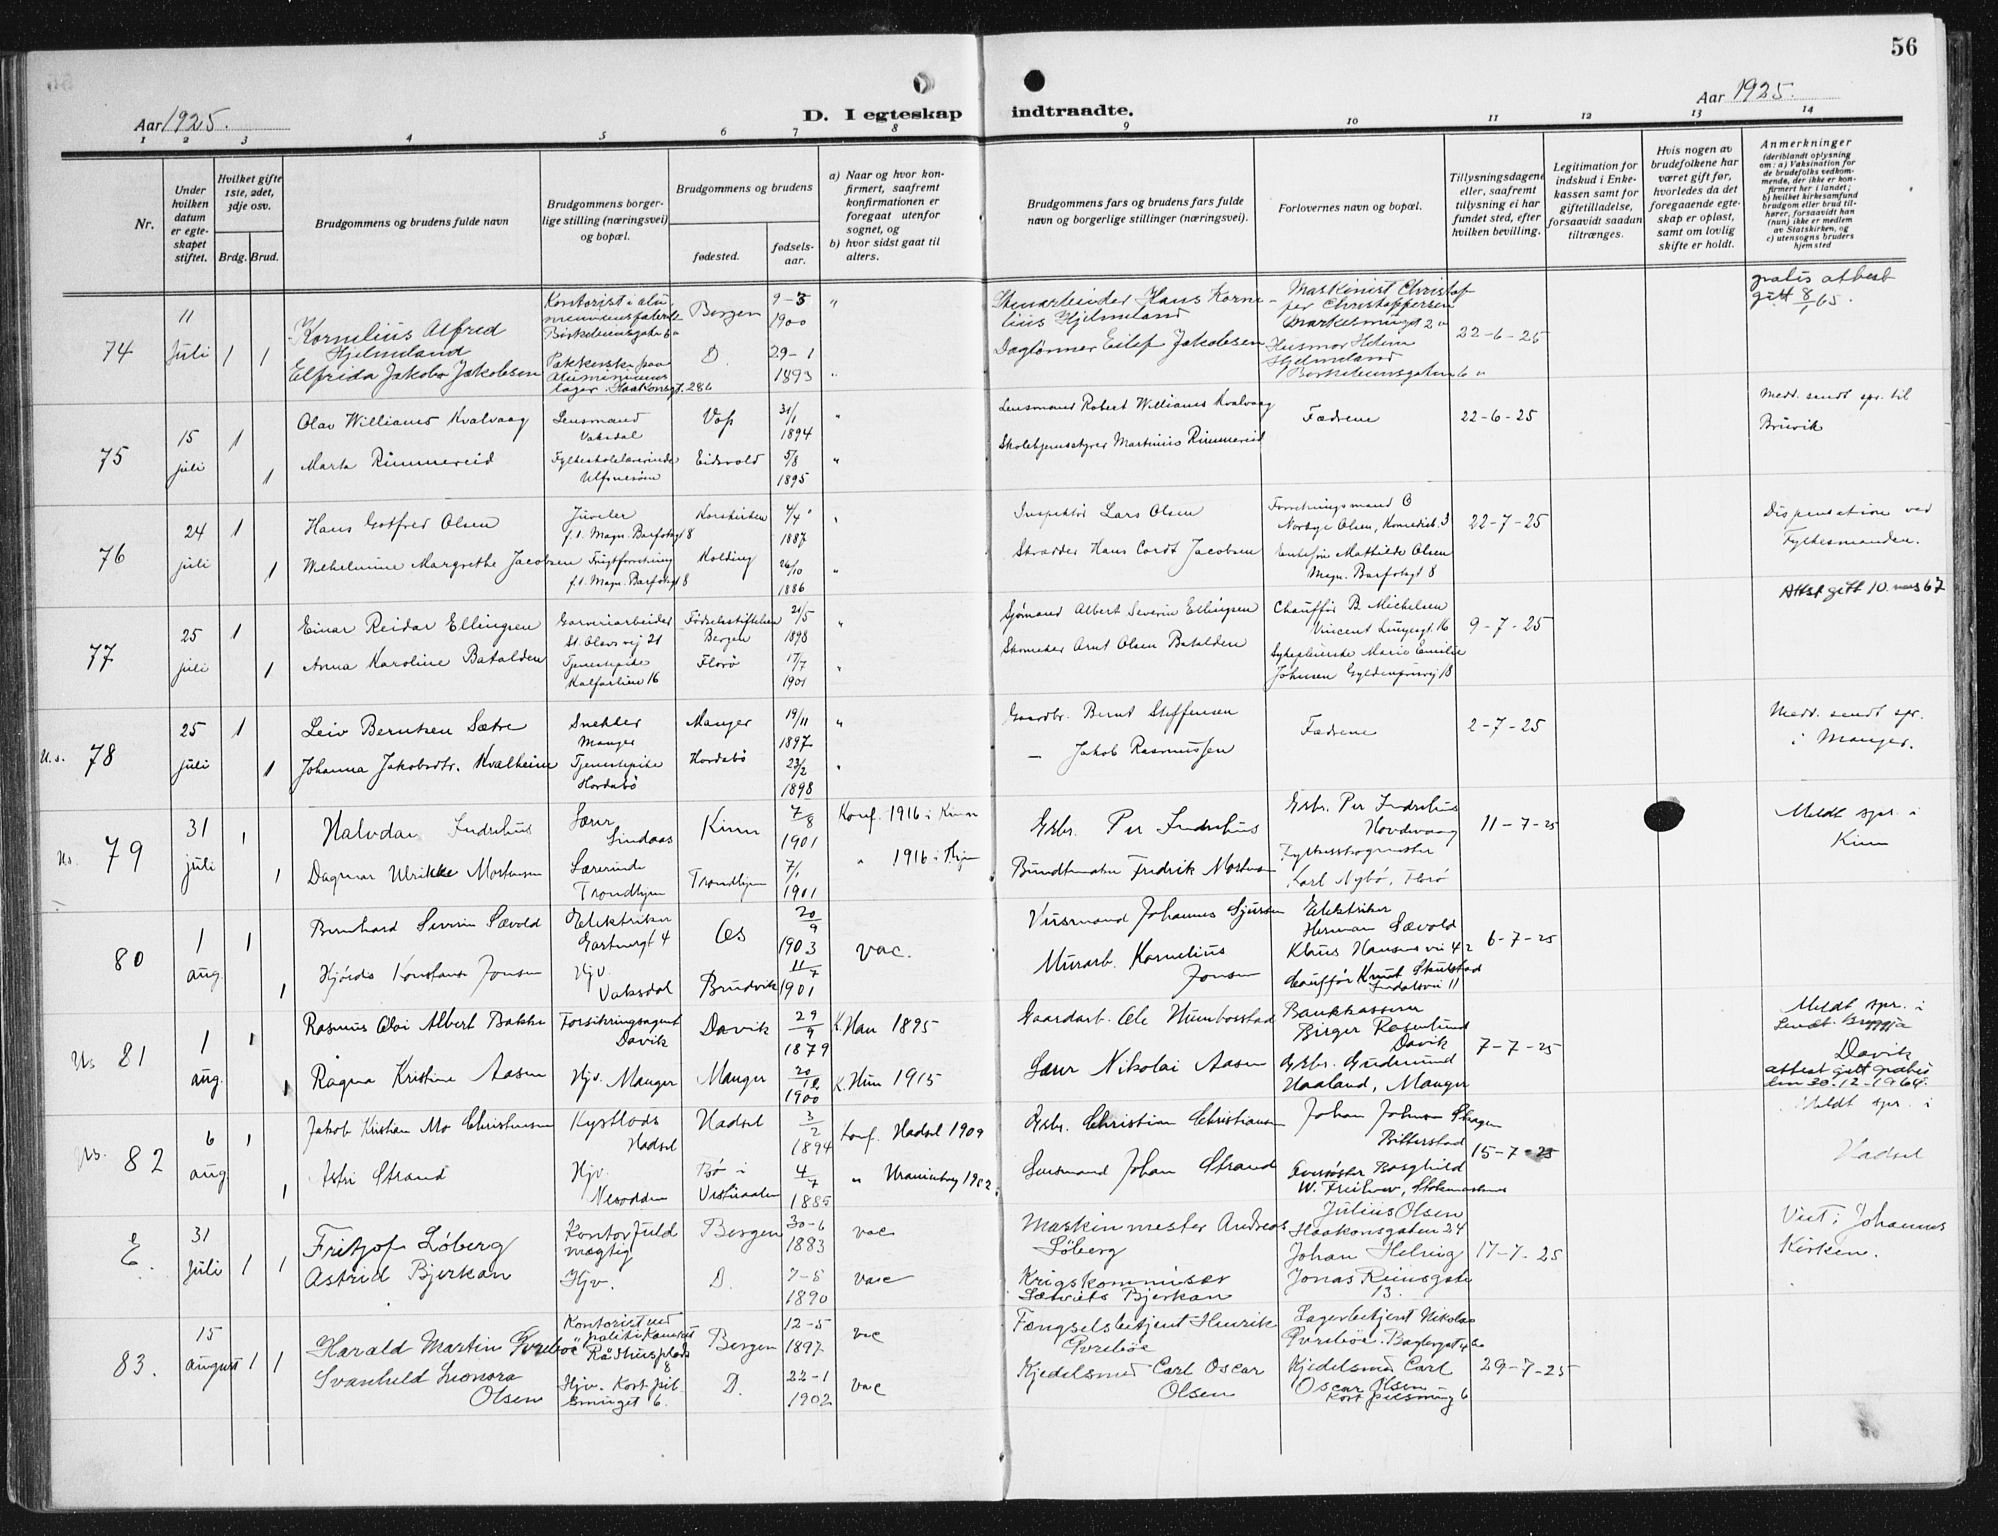 56
Aar 1925.
D. I egteskap indtraadte.
Aar 1925.
1 2 3 4 5 6 7 8 9 10 11 12 13 14
Nr.
Under hvilken datum er egteskapet stiftet.
Hvilket gifte 1ste, 2det, 3dje osv.
Brdg. Brud.
Brudgommens og brudens fulde navn
Brudgommens borgerlige stilling (næringsvei) og bopæl.
Brudgommens og brudens
fødested.
fødselsaar.
a) Naar og hvor konfirmert, saafremt konfirmationen er foregaat utenfor sognet, og
b) hvor sidst gaat til alters.
Brudgommens fars og brudens fars fulde navn og borgerlige stillinger (næringsvei).
Forlovernes navn og bopæl.
Tillysningsdagene eller, saafremt tillysning ei har fundet sted, efter hvilken bevilling.
Legitimation for indskud i Enkekassen samt for giftetilladelse, forsaavidt saadan tiltrænges.
Hvis nogen av brudefolkene har været gift før, hvorledes da det foregaaende egteskap er opløst, samt om lovlig skifte er holdt.
Anmerkninger
(deriblandt oplysning om: a) Vaksination for de brudefolks vedkommende, der ikke er konfirmert her i landet; b) hvilket kirkesamfund brudgom eller brud tilhører, forsaavidt han (hun) ikke er medlem av Statskirken, og c) utensogns bruders hjemsted
74 11 Juli 1 1
Kornelius Alfred Hjelmeland
Kontorist i
Bergen 9-3 1900 "
Hans Kornelius Hjelmeland
Maskinist Christoffer Christoffersen
22-6-25
gratis attest gitt 8/ 65.
Elfrida Jakoba Jakobsen
D. 29-1 1893 "
Daglønner Eilef Jakobsen
Hjelmeland
75 15 juli 1 1
Olav Williams Kvalvaag
Lensmand Vaksdal
Vos 31/1 1894 "
Lensmand Robert Williams Kvalvaag
Fædrene
22-6-25
Medd. sendt spr. til Bruvik
Marta Rimmereid
Eidsvold 5/8 1895 "
Martinius Rimmereid
76 24 juli 1 1
Hans Gotfred Olsen
Juveler f.t. Magn. Barfotsgt 8
Korskirken 4/4 1887 "
Inspektør Lars Olsen
Norbye Olsen,
22-7-25
Dispensation ved Fylkesmanden.
Wilhelmine Margrethe Jacobsen
f.t. Magn. Barfotsgt 8
Kolding 26/10 1886 "
Skrædder Hans Cordt Jacobsen
Mathilde Olsen Magn. Barfotsgt 8
Attst gitt 10 mars 67
77 25 juli 1 1
Einar Reidar Ellingsen
Garveriarbeider St. Olavs vei 21
Fødselsstiftelsen Bergen 21/5 1898 "
Sjømand Albert Severin Ellingsen
Chauffør B. Michelsen Vincent Lungesgt. 16
9-7-25
Anna Karoline Batalden
Tjenestepike Kalfarlien 16
Florø 17/7 1901 "
Skomaker Arnt Olsen Batalden
Sykepleierske Marie Emilie Johnsen Gyldenprisvei 18
U.s. 78 25 juli 1 1
Leiv Berntsen Sætre
Snekker Manger
Manger 19/11 1897 "
Gaardbr. Bernt Steffensen
Fædrene
2-7-25
Medd. sendt spr. i Manger.
Johanna Jakobsdtr. Kvalheim
Tjenestepike Hordabø
Hordabø 23/2 1898 "
— Jakob Rasmussen
Us. 79 31 juli 1 1
Halvdan Indrehus
Lærer Lindaas
Kinn 7/8 1901
Konf. 1916 i Kinn
Grbr. Per Indrehus
Grbr. Per Indrehus Hovdevaag
11-7-25
Meldt spr. i Kinn
Dagmar Ulrikke Mortensen
Lærerinde Trondhjem
Trondhjem 7/1 1901
" 1916 i Thjm
Bundtmaker Fredrik Mortensen
Karl Nybø, Florø
80 1 aug. 1 1
Bernhard Severin Sævold
Elektriker
Os 20/9 1903
vac.
Vusmand Johannes Sjursen
Elektriker Herman Sævold Klaus Hansens vei 42
6-7-25
Hjørdis Konstanse Jonsen
Hjv. Vaksdal
Bruvik 11/7 1901
Murarb. Kornelius Jonsen
Chauffør Knut Skulstad
Us 81 1 aug. 1 1
Rasmus Olai Albert Bakke
Forsikringsagent Davik
Davik 29/9 1879
K. Hau 1895
Gaardarb. Ole Humborstad
Bankkasserer Birger Rosenlund Davik
7-7-25
Meldt spr. i Davik
attest gitt gratis den 30.12.1964.
Ragna Kristine Aasen
Hjv. Manger
Manger 20/12 1900
K. 1915
Lærer Nikolai Aasen
Grbr. Gudmund Haaland, Manger
Us. 82 6 aug 1 1
Jakob Kristian Mo Christensen
Kystlods Hadsel
Hadsel 3/2 1894
Konf. Hadsel 1909
Grbr. Christian Christiansen
Johan Johnsen Skagen Bitterstad
15-7-25
Meldt spr. i Hadsel
Astri Strand
Hjv. Nesodden
Bø i Vesteraalen 4/7 1885
" Uranienborg 1902.
Lensmand Johan Strand
Borghild W. Stokmarknes
E. 31 Juli 1 1
Fritjof Løberg
Kontorfuldmægtig
Bergen 30-6 1883
vac
Maskinmester Andreas Løberg
Julius Olsen Haakonsgaten 24
17-7-25
Viet i Johannes Kirken.
Astrid Bjerkan
Hjv.
D. 7-5 1890
vac
Krigskommisær Bjerkan
Johan Helvig Jonas Reinsgate 13.
83. 15 august 1 1
Harald Martin Pyrebøe
Kontorist ved politikamret Rådhusplads 8
Bergen 12-5 1897
vac
Fængselsbetjent Henrik Pyrebøe
Lagerbetjent Nikolai Pyrebøe.
29-7-25
Svanhild Leonora Olsen
Hjv. Kort pilsmuget 6.
D. 22-1 1902
vac
Kjedelsmed Carl Oscar Olsen
Kjedelsmed Carl Oscar Olsen Kort pilsmug 6